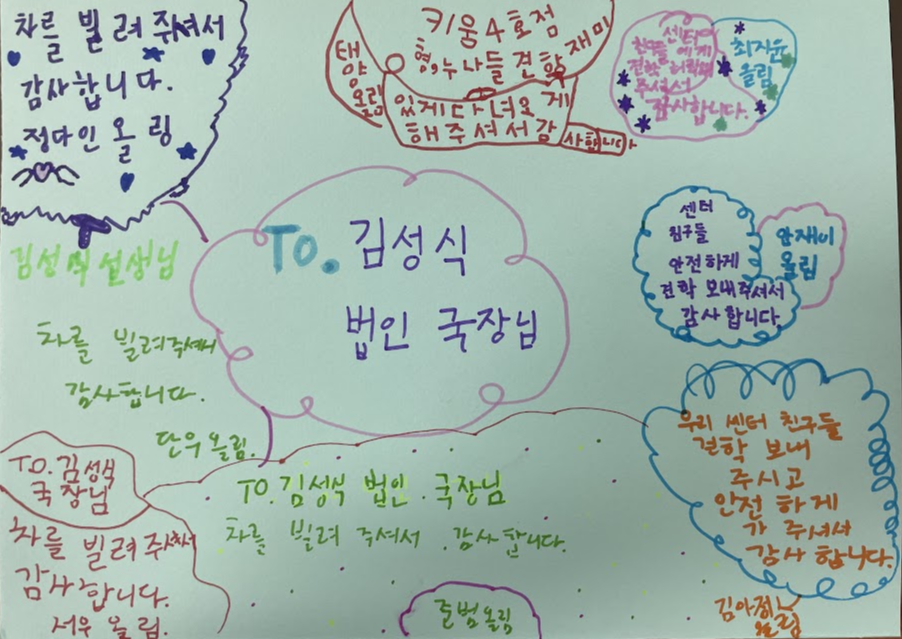 차를 빌려 주셔서
감사합니다.
정다인 올림
키움4호점
형,누나들 견학 재미
있게 다녀오게
해주셔서 감
사합니다
태양올림
센터
친구들에게
견학
주셔서
감사합니다.
최지윤
올림
To. 김성식
법인 국장님
센터
친구들
안전하게
견학 보내주셔서
감사합니다.
안재이
올림
김성식 선생님
차를 빌려주셔서
감사합니다.
단우올림.
TO.김성식
국장님
차를 빌려주셔서
감사합니다.
서우 올림.
TO.김성식 법인 국장님
차를 빌려 주셔서 감사합니다.
준범올림
우리 센터 친구들
견학 보내
주시고
안전하게
가 주셔서
감사합니다.
김아정
올림